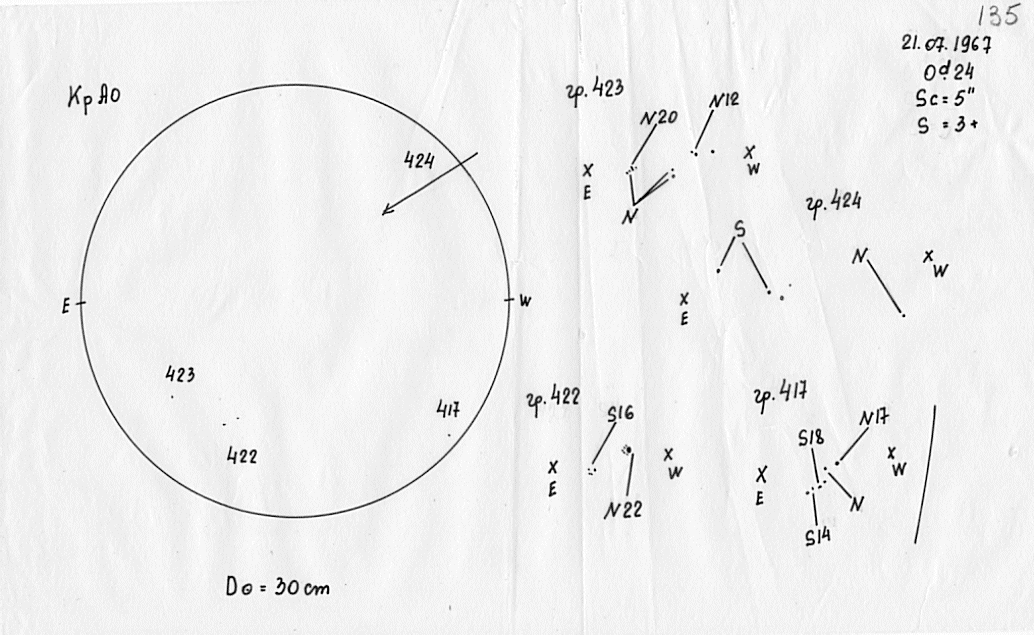 135
21.07.1967
0d24
Sc = 5"
S = 3+
КрАО
424
E
W
423
417
422
D⊙ = 30 cm
гр. 423
N20
N12
X
E
N
X
W
S
X
E
гр. 424
N
X
W
гр. 422
S16
X
E
X
W
N22
гр. 417
N17
S18
X
E
X
W
N
S14